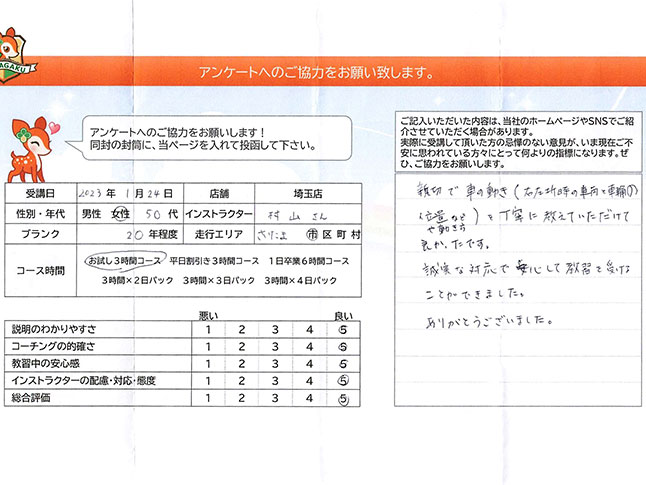 AGAKU
アンケートへのご協力をお願い致します。
アンケートへのご協力をお願いします!
同封の封筒に、当ページを入れて投函して下さい。
ご記入いただいた内容は、当社のホームページやSNSでご紹介させていただく場合があります。
実際に受講して頂いた方の忌憚のない意見が、いま現在ご不安に思われている方々にとって何よりの指標になります。ぜひ、ご協力をお願いします。
受講日 2023年 1月 24日 店舗 埼玉店
性別・年代 男性 女性 50代 インストラクター 村山さん
ブランク 20年程度 走行エリア さいたま 市区町村
コース時間 お試し3時間コース 平日割引き3時間コース 1日卒業6時間コース
3時間×2日パック 3時間×3日パック 3時間×4日パック
悪い 良い
説明のわかりやすさ 1 2 3 4 5
コーチングの的確さ 1 2 3 4 5
教習中の安心感 1 2 3 4 5
インストラクターの配慮・対応・態度 1 2 3 4 5
総合評価 1 2 3 4 5
親切で車の動き(右左折時の車両と車輪の
位置など や動き方)を丁寧に教えていただけて
良かったです。
誠実な対応で安心して教習を受ける
ことができました。
ありがとうございました。